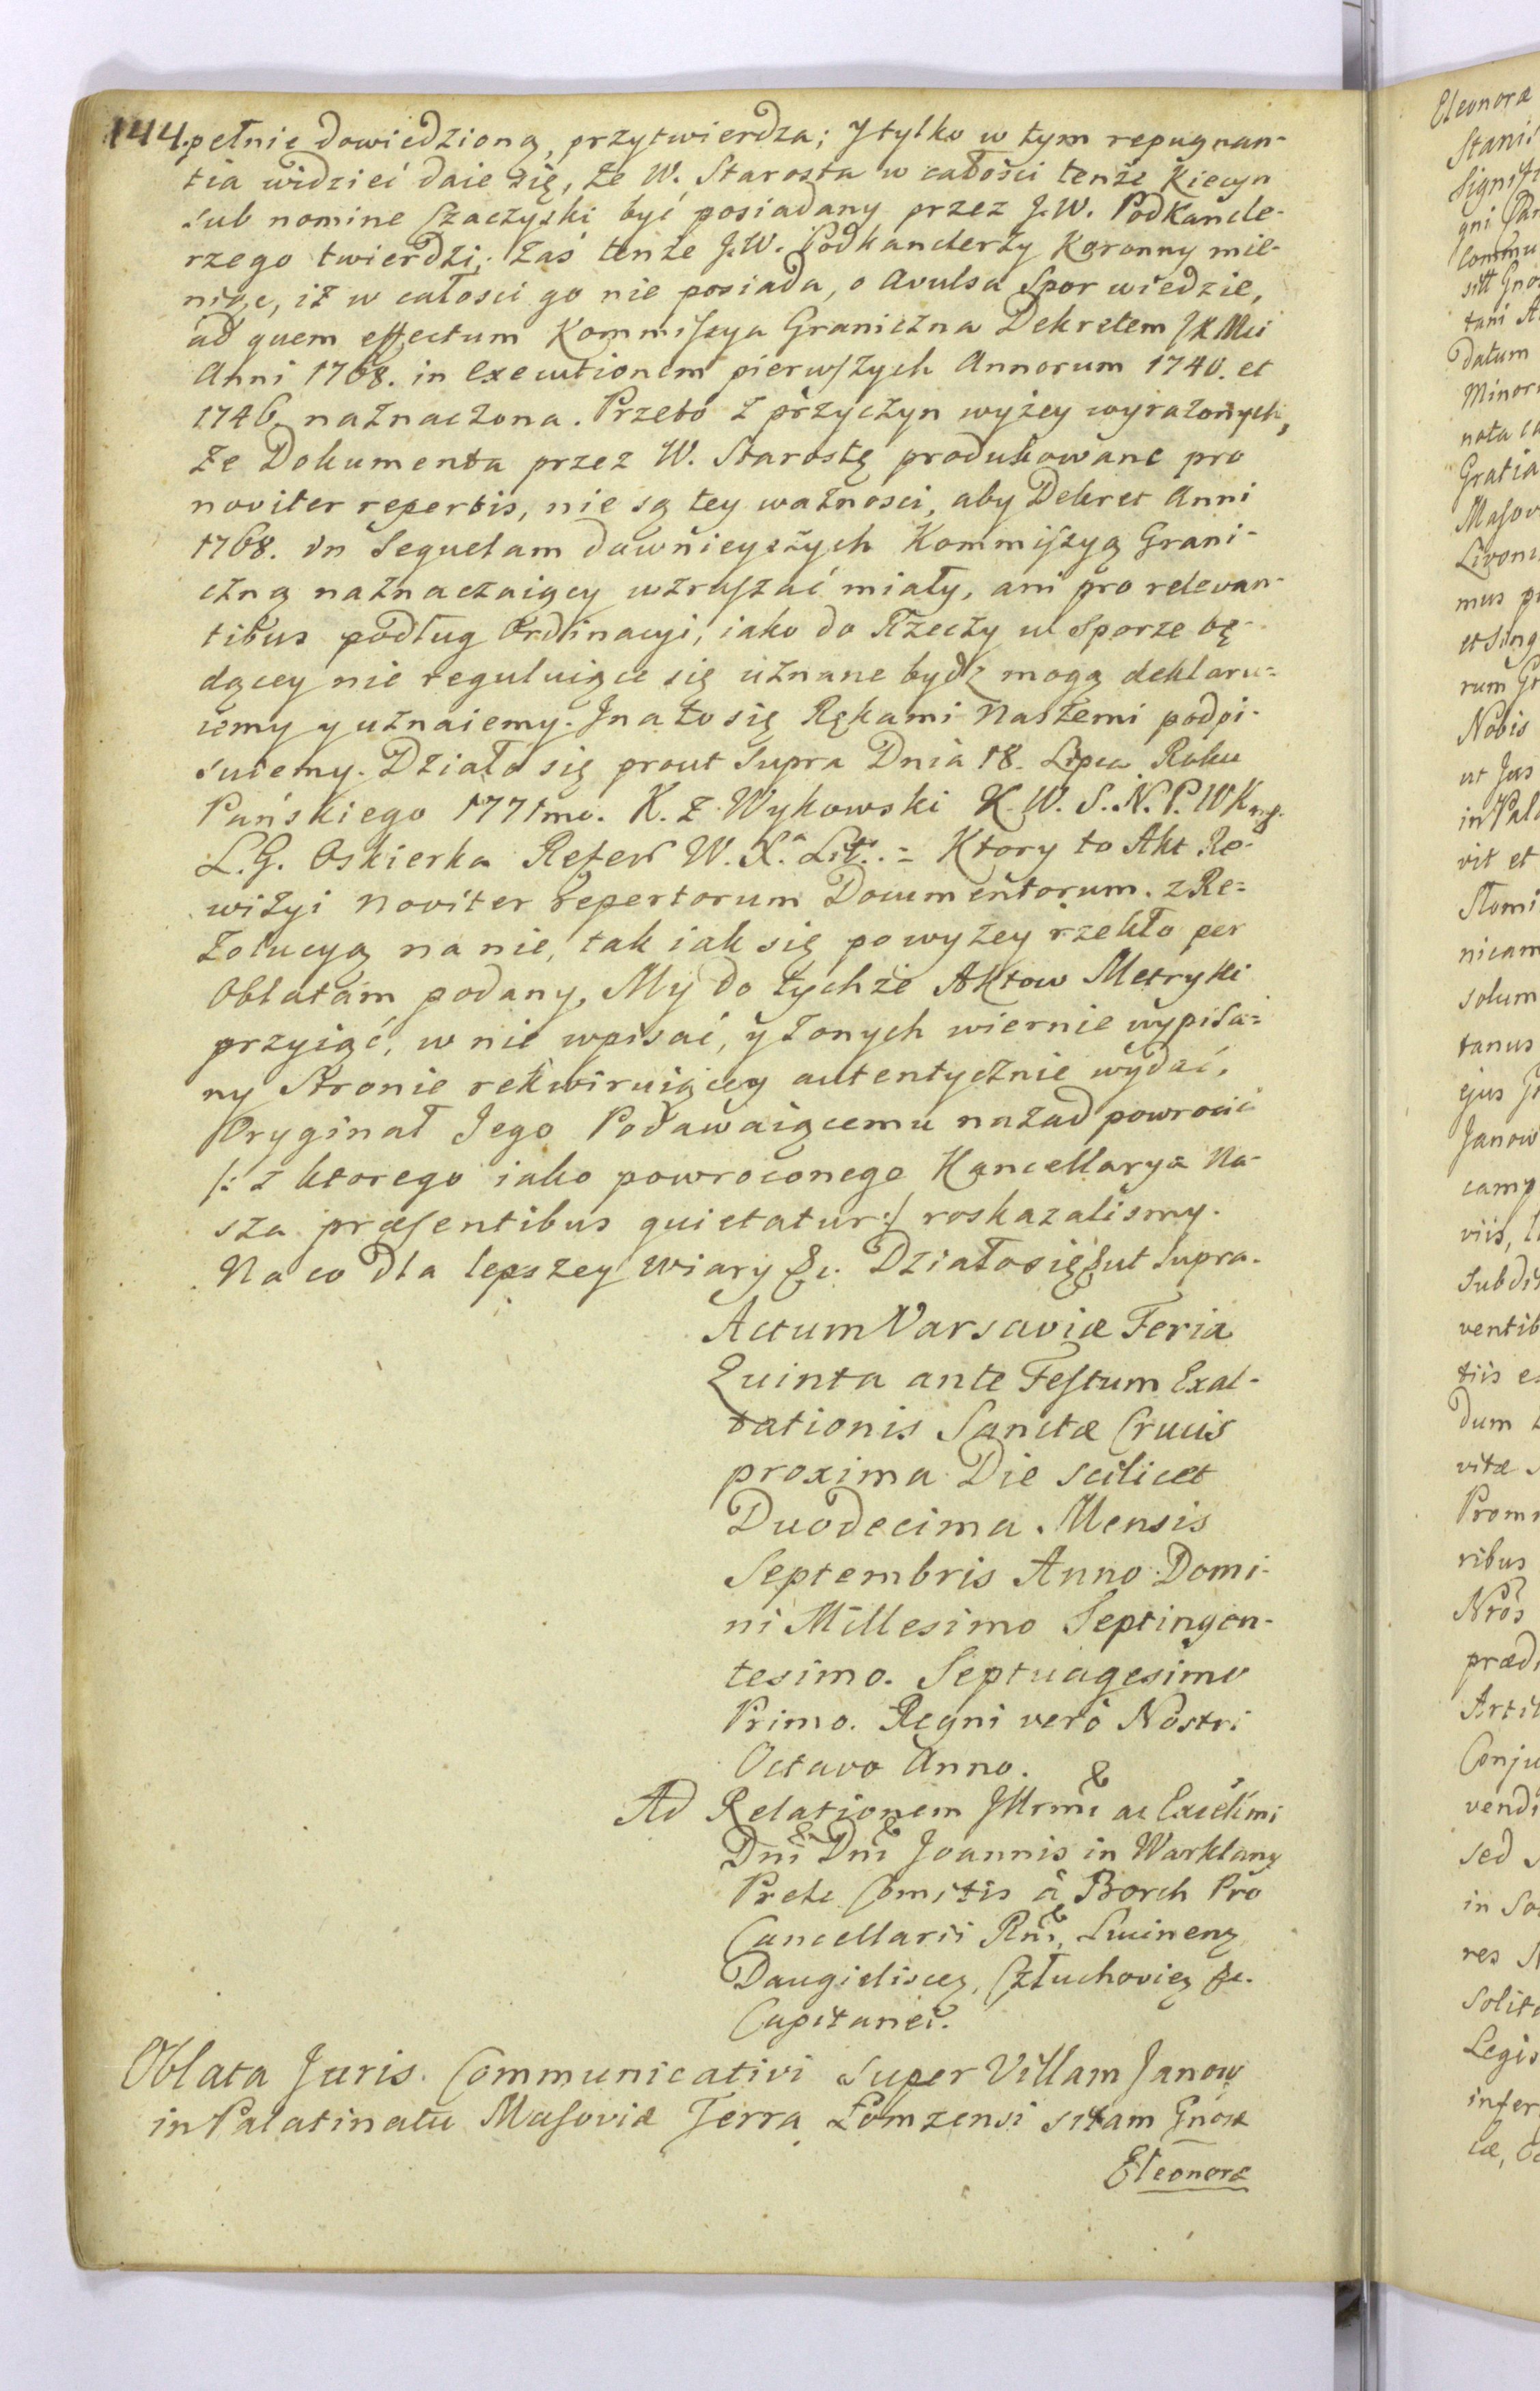 144. pełnię dowiedzioną, przytwierdza; Y tylko w tym repugnan-
tia widzieć daie się, że W. Starosta w całości tenże Kiecyn
sub nomine Szaczyski być posiadany przez J.W. Podkancle-
rzego twierdzi; zaś tenże J.W. Podkanclerzy Koronny mie-
niąc, iż w całosci go nie posiada, o avulsa Spor wiedzie,
ad quem effectum Kommissya Graniczna Dekretem JKMci
Anni 1768. in Executionem pierwszych Annorum 1740. et
1746. naznaczona. Przeto z przyczyn wyżey wyrażonych,
że Dokumenta przez W. Starostę produkowane pro
noviter repertis, nie są tey ważnosci, aby Dekret Anni
1768. in Sequelam dawnieyszych Kommissyą Grani-
czną naznaczaiący wzruszać miały, ani pro relevan-
tibus podług Ordinacyi, iako do Rzeczy w Sporze bę-
dącey nie reguluiące się uznane bydź mogą deklaru=
iemy y uznaiemy. Jnato się Rękami Naszemi podpi-
suiemy. Działo się prout Supra Dnia 18. Lipca Roku
Pańskiego 1771mo. K. Z. Wykowski K. W. S. N. P. W Kng.
L.G. Oskierka Referr W. X.a Lit. = Ktory to Akt Re-
wizyi Noviter repertorum Documentorum. z Re=
zolucyą na nie, tak iak się powyżey rzekło per
Oblatam podany, My do tychże Aktow Metryki
przyiąć, w nie wpisać, y z onych wiernie wypisa=
ny Stronie rekwiruiącey autentycznie wydać,
Oryginał Jego Podawaiącemu nazad powrocić
/: z ktorego iako powroconego Kancellarya Na-
sza præsentibus quietatur :/ roskazalismy.
Na co dla lepszey wiary &c. Działo się ut Supra.
Actum Varsaviæ Feria
Quinta ante Festum Exal-
tationis Sanctæ Crucis
proxima Die scilicet
Duodecima. Mensis
Septembris Anno Domi-
ni Millesimo Septingen-
tesimo. Septuagesimo
Primo. Regni verò Nostri
Octavo Anno.
Ad Relationem Jllrmi ac Excellmi
Dni Dni Joannis in Warklany
Prele Comitis à Borch Pro
Cancellarii Rni, Lucinenz
Daugieliscez, Człuchoviez &c.
Capitanei.
Oblata Juris. Communicativi Super Villam Janow
in Palatinatu Masoviæ Terra Łomzensi sitam Gnosæ
Eleonoræ
Eleonoræ
Stanis
Signifi
gni
Commu
sitt Gnos
tani A
datum
Minor
nota ca
Gratia
Masov
Livoni
mus p
et sing
rum Gr
Nobis
ut Jus
in Pala
vit et
Stomi
nicam
solum
tanus
ejus G
Janow
camp
viis, l
Subdi
ventib
tiis e
dum
vitæ
Prom
ribus
Nros
præd
Arti
Conju
vendi
sed
in So
res N
Solit
Legis
infer
cæ,